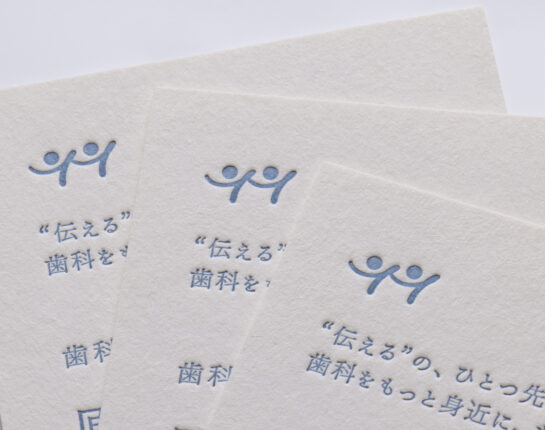 “伝える”
歯科をも
歯科
“伝える”
歯科を
歯科
“伝える”の、ひとつ先
歯科をもっと身近に、